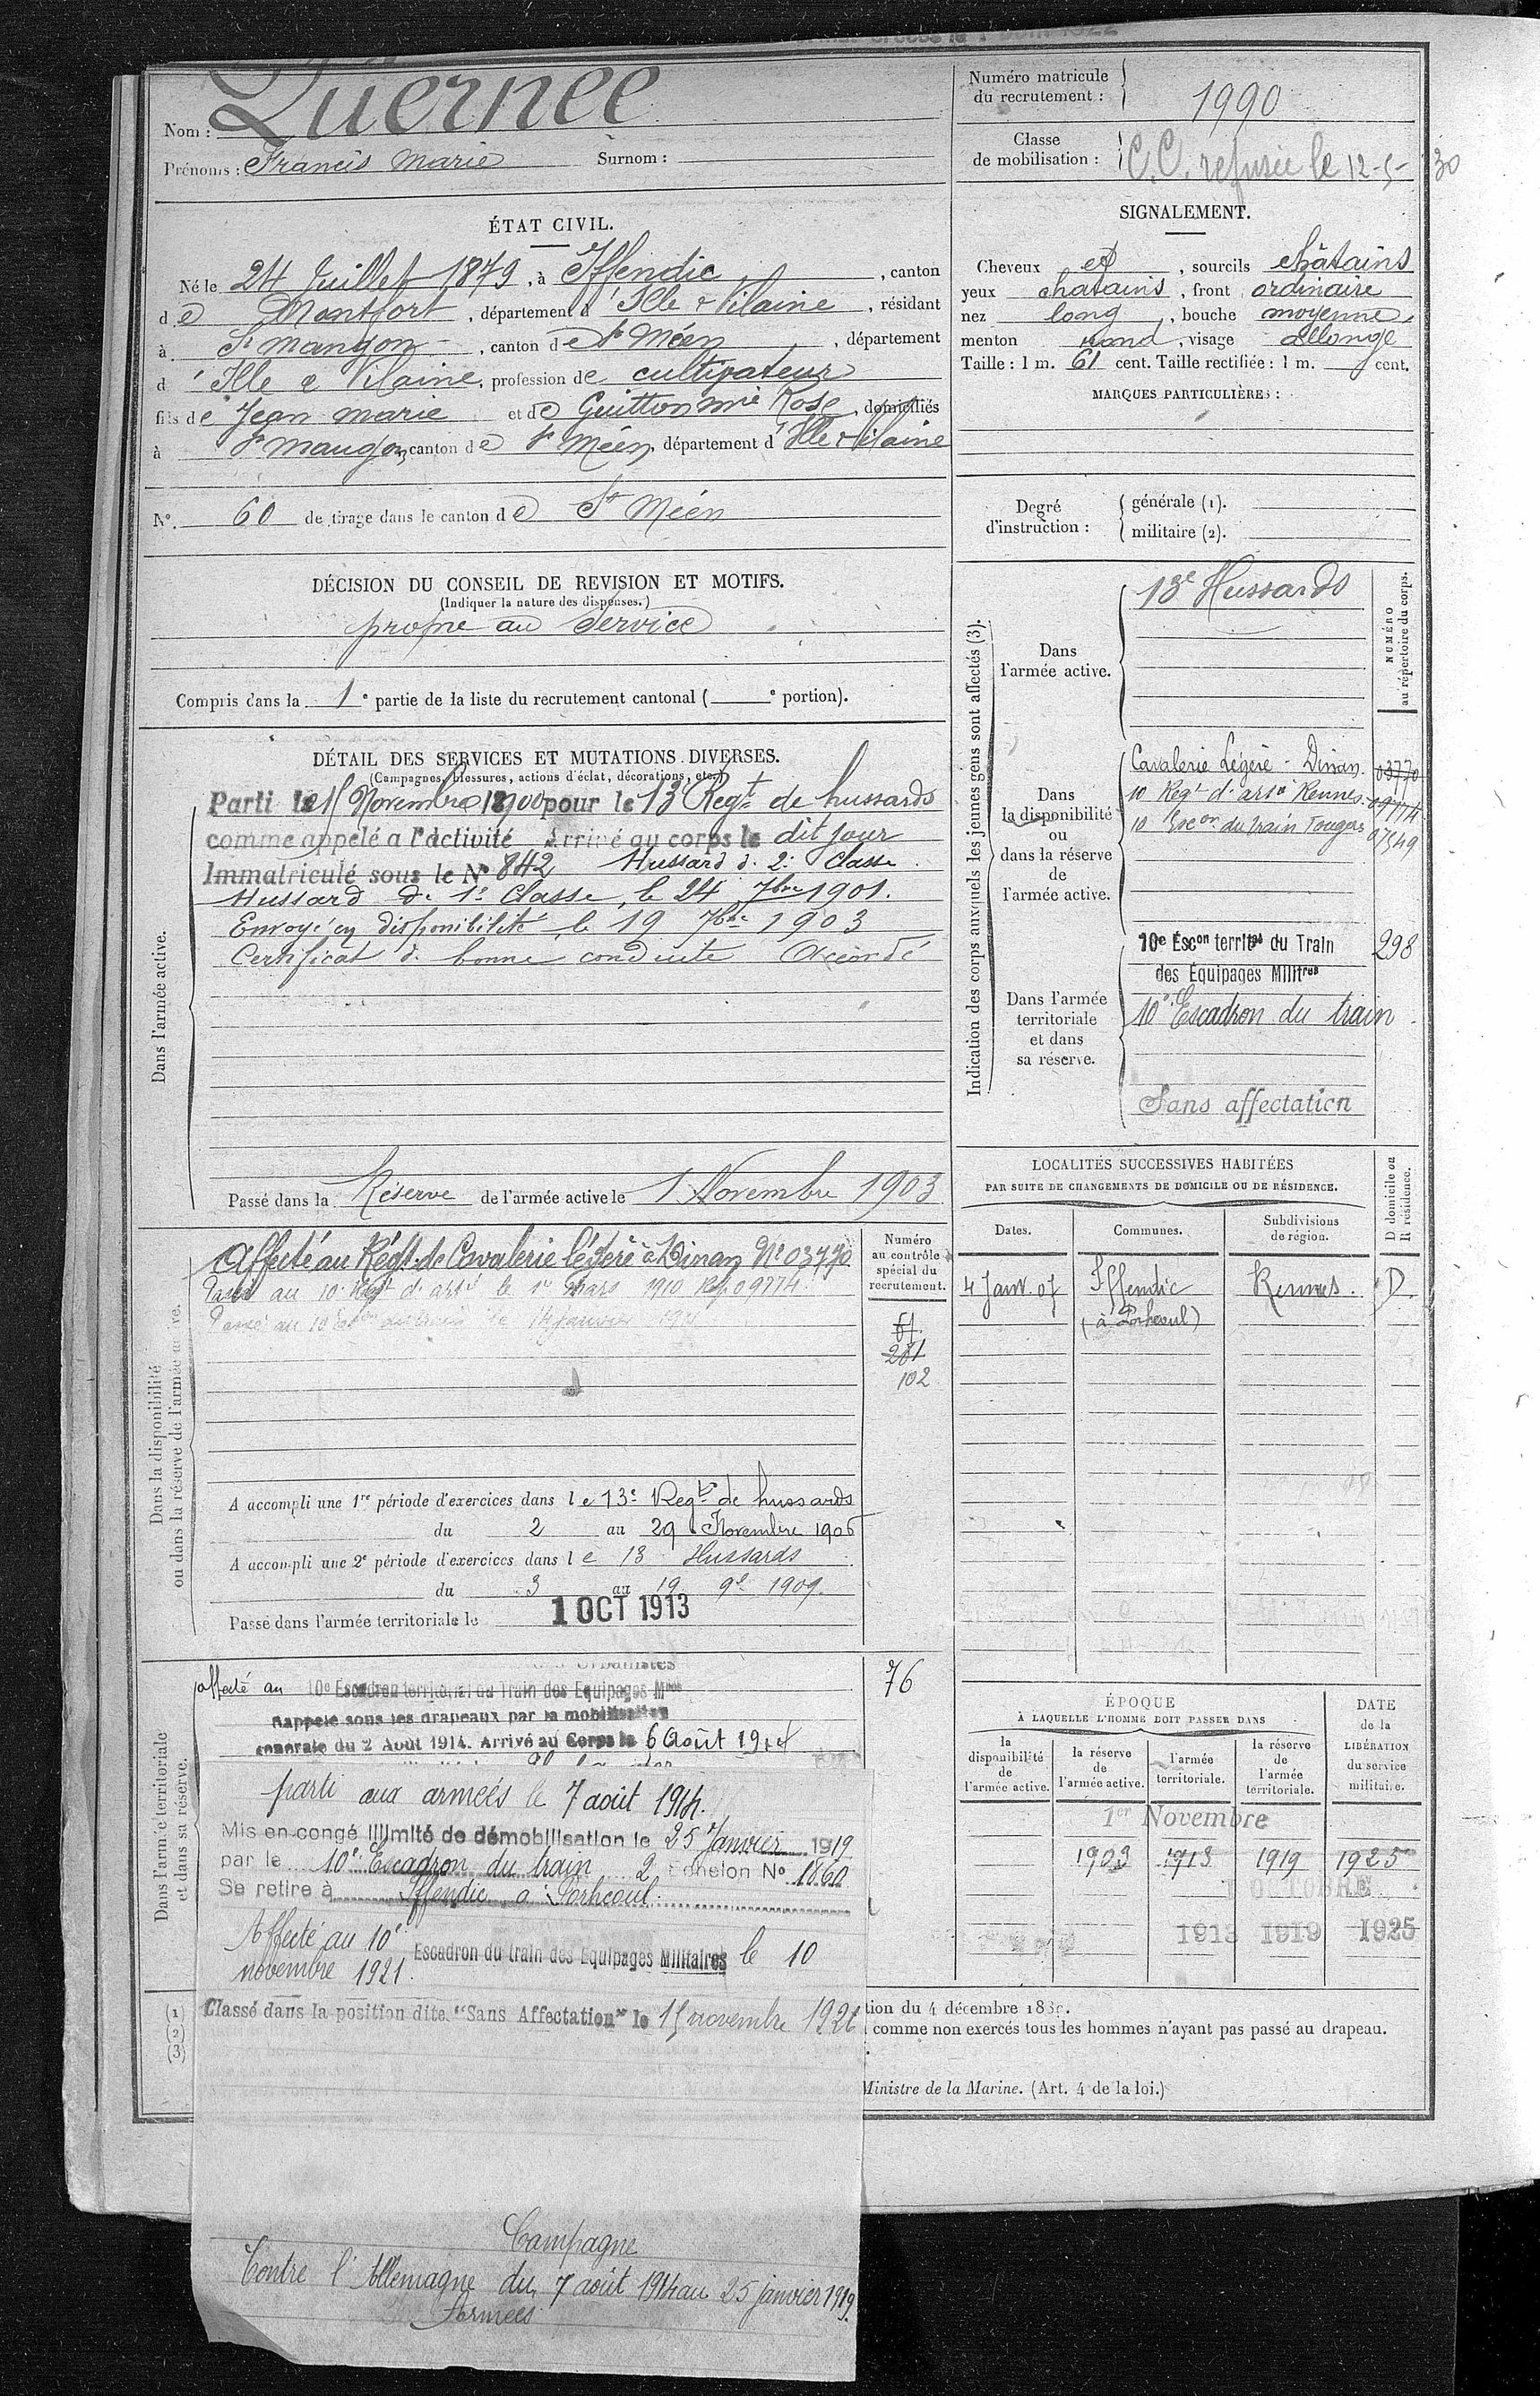 Nom : Quernée
Prénoms : Francis Marie Surnom :
ÉTAT CIVIL.
Né le 24 Juillet 1879, à Iffendic, canton
de Montfort, département d'Ille & Vilaine, résidant
à St Maugon, canton de St Méen, département
d'Ille & Vilaine, profession de cultivateur
fils de Jean Marie et de Guitton Rose, domiciliés
à St Maugon, canton de St Méen, département d'Ille & Vilaine
No. 60 de tirage dans le canton de St Méen
DÉCISION DU CONSEIL DE REVISION ET MOTIFS.
(Indiquer la nature des dispenses.)
propre au service
Compris dans la 1e partie de la liste du recrutement cantonal ( e portion).
DÉTAIL DES SERVICES ET MUTATIONS DIVERSES.
(Campagnes, blessures, actions d'éclat, décorations, etc.)
Parti le 15 Novembre 1900 pour le 13 Regt de hussards
comme appelé a l'activité Arrivé au corps le dit jour
Immatriculé sous le No 842 Hussard d. 2e Classe
Hussard de 1e Classe, le 24 7bre 1901.
Envoyé en disponibilité le 19 7bre 1903
Certificat d. bonne conduite Accordé
Dans l'armée active.
Passé dans la Réserve de l'armée active le 1 Novembre 1903
Affecté au Régt de Cavalerie légère à Dinan No 03770
Passé au 10e Régt d'artie le 1er Mars 1910 Rep 09774
Passé au 10 Escon du train le 14 Janvier
Numéro
au contrôle
spécial du
recrutement.
61
281
102
Dans la disponibilité
ou dans la réserve de l'armée active.
A accompli une 1re période d'exercices dans le 13e Regt de hussards
du 2 au 29 Novembre 1906
A accompli une 2e période d'exercices dans le 13 Hussards
du 3 au 19 9e 1909.
Passé dans l'armée territoriale le 1 OCT 1913
affecté au 10e Escadron territorial du Train des Equipages Mres
76
Rappelé sous les drapeaux par la mobilisation
générale du 2 Août 1914. Arrivé au Corps le 6 Août 1914
parti aux armées le 7 août 1914.
Mis en congé illimité de démobilisation le 25 Janvier 1919
par le 10e Escadron du train 2 Echelon No 1860
Se retire à Iffendic à Porhcoul
Affecté au 10e Escadron du train des Equipages Militaires le 10
novembre 1921.
Classé dans la position dite "Sans Affectation" le 15 novembre 1926
Dans l'armée territoriale
et dans sa réserve.
(1)
(2)
(3)
Campagne
Contre l'Allemagne du 7 août 1914 au 25 janvier 1919.
Armées
Numéro matricule
du recrutement : 1990
Classe
de mobilisation : C.C. refusée le 12-5-30
SIGNALEMENT.
Cheveux et, sourcils châtains
yeux chatains, front ordinaire
nez long, bouche moyenne,
menton rond, visage allongé
Taille : 1 m. 61 cent. Taille rectifiée : 1 m. cent.
MARQUES PARTICULIÈRES :
Degré
d'instruction :
générale (1).
militaire (2).
Indication des corps auxquels les jeunes gens sont affectés (3).
NUMÉRO
au répertoire du corps.
Dans
l'armée active.
13e Hussards
Dans
la disponibilité
ou
dans la réserve
de
l'armée active.
Cavalerie Légère - Dinan. 03770
10 Regt d'artie Rennes. 09774
10 Escon du train Fougères 07549
Dans l'armée
territoriale
et dans
sa réserve.
10e Escon territal du Train 298
des Équipages Militres
10e Escadron du train
Sans affectation
LOCALITÉS SUCCESSIVES HABITÉES
PAR SUITE DE CHANGEMENTS DE DOMICILE OU DE RÉSIDENCE.
Dates. Communes. Subdivisions
de région. D domicile ou
R résidence.
4 Janv. 07 Iffendic Rennes. D.
(à Porhcoul)
ÉPOQUE
À LAQUELLE L'HOMME DOIT PASSER DANS
la
disponibilité
de
l'armée active.
la réserve
de
l'armée active.
l'armée
territoriale.
la réserve
de
l'armée
territoriale.
DATE
de la
LIBÉRATION
du service
militaire.
1er Novembre
1903 1913 1919 1925
1 OCTOBRE
1913 1919 1925
tion du 4 décembre 188
comme non exercés tous les hommes n'ayant pas passé au drapeau.
Ministre de la Marine. (Art. 4 de la loi.)